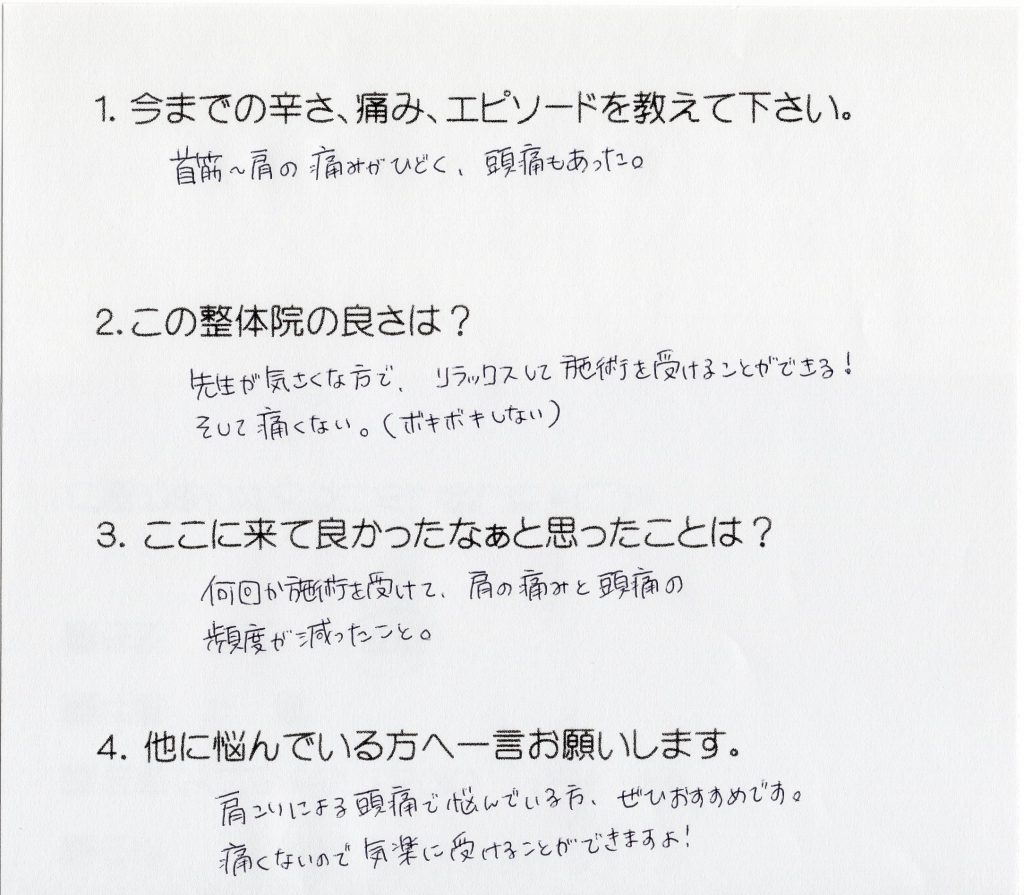 1. 今までの辛さ、痛み、エピソードを教えて下さい。
首筋～肩の痛みがひどく、頭痛もあった。
2. この整体院の良さは？
先生が気さくな方で、リラックスして施術を受けることができる！
そして痛くない。（ボキボキしない）
3. ここに来て良かったなぁと思ったことは？
何回か施術を受けて、肩の痛みと頭痛の
頻度が減ったこと。
4. 他に悩んでいる方へ一言お願いします。
肩こりによる頭痛で悩んでいる方、ぜひおすすめです。
痛くないので気楽に受けることができますよ！